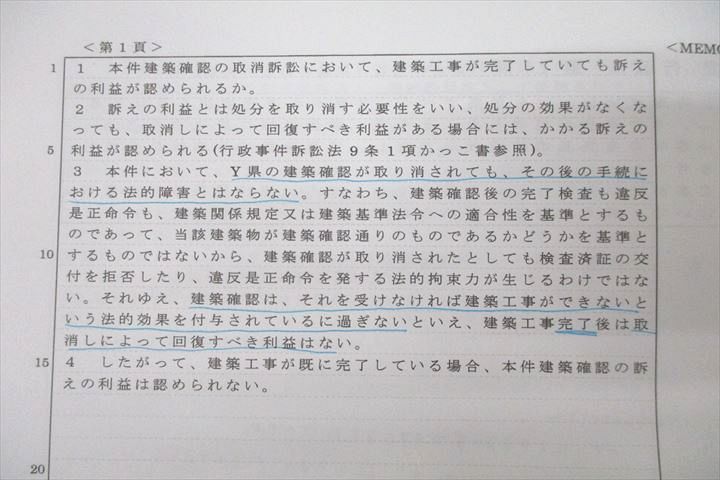 <第1頁>
<MEMO
1 1 本件建築確認の取消訴訟において、建築工事が完了していても訴え
の利益が認められるか。
2 訴えの利益とは処分を取り消す必要性をいい、処分の効果がなくな
っても、取消しによって回復すべき利益がある場合には、かかる訴えの
5 利益が認められる(行政事件訴訟法9条1項かっこ書参照)。
3 本件において、Y県の建築確認が取り消されても、その後の手続に
おける法的障害とはならない。すなわち、建築確認後の完了検査も違反
是正命令も、建築関係規定又は建築基準法令への適合性を基準とするも
のであって、当該建築物が建築確認通りのものであるかどうかを基準と
10 するものではないから、建築確認が取り消されたとしても検査済証の交
付を拒否したり、違反是正命令を発する法的拘束力が生じるわけではな
い。それゆえ、建築確認は、それを受けなければ建築工事ができないと
いう法的効果を付与されているに過ぎないといえ、建築工事完了後は取
消しによって回復すべき利益はない。
15 4 したがって、建築工事が既に完了している場合、本件建築確認の訴
えの利益は認められない。
20